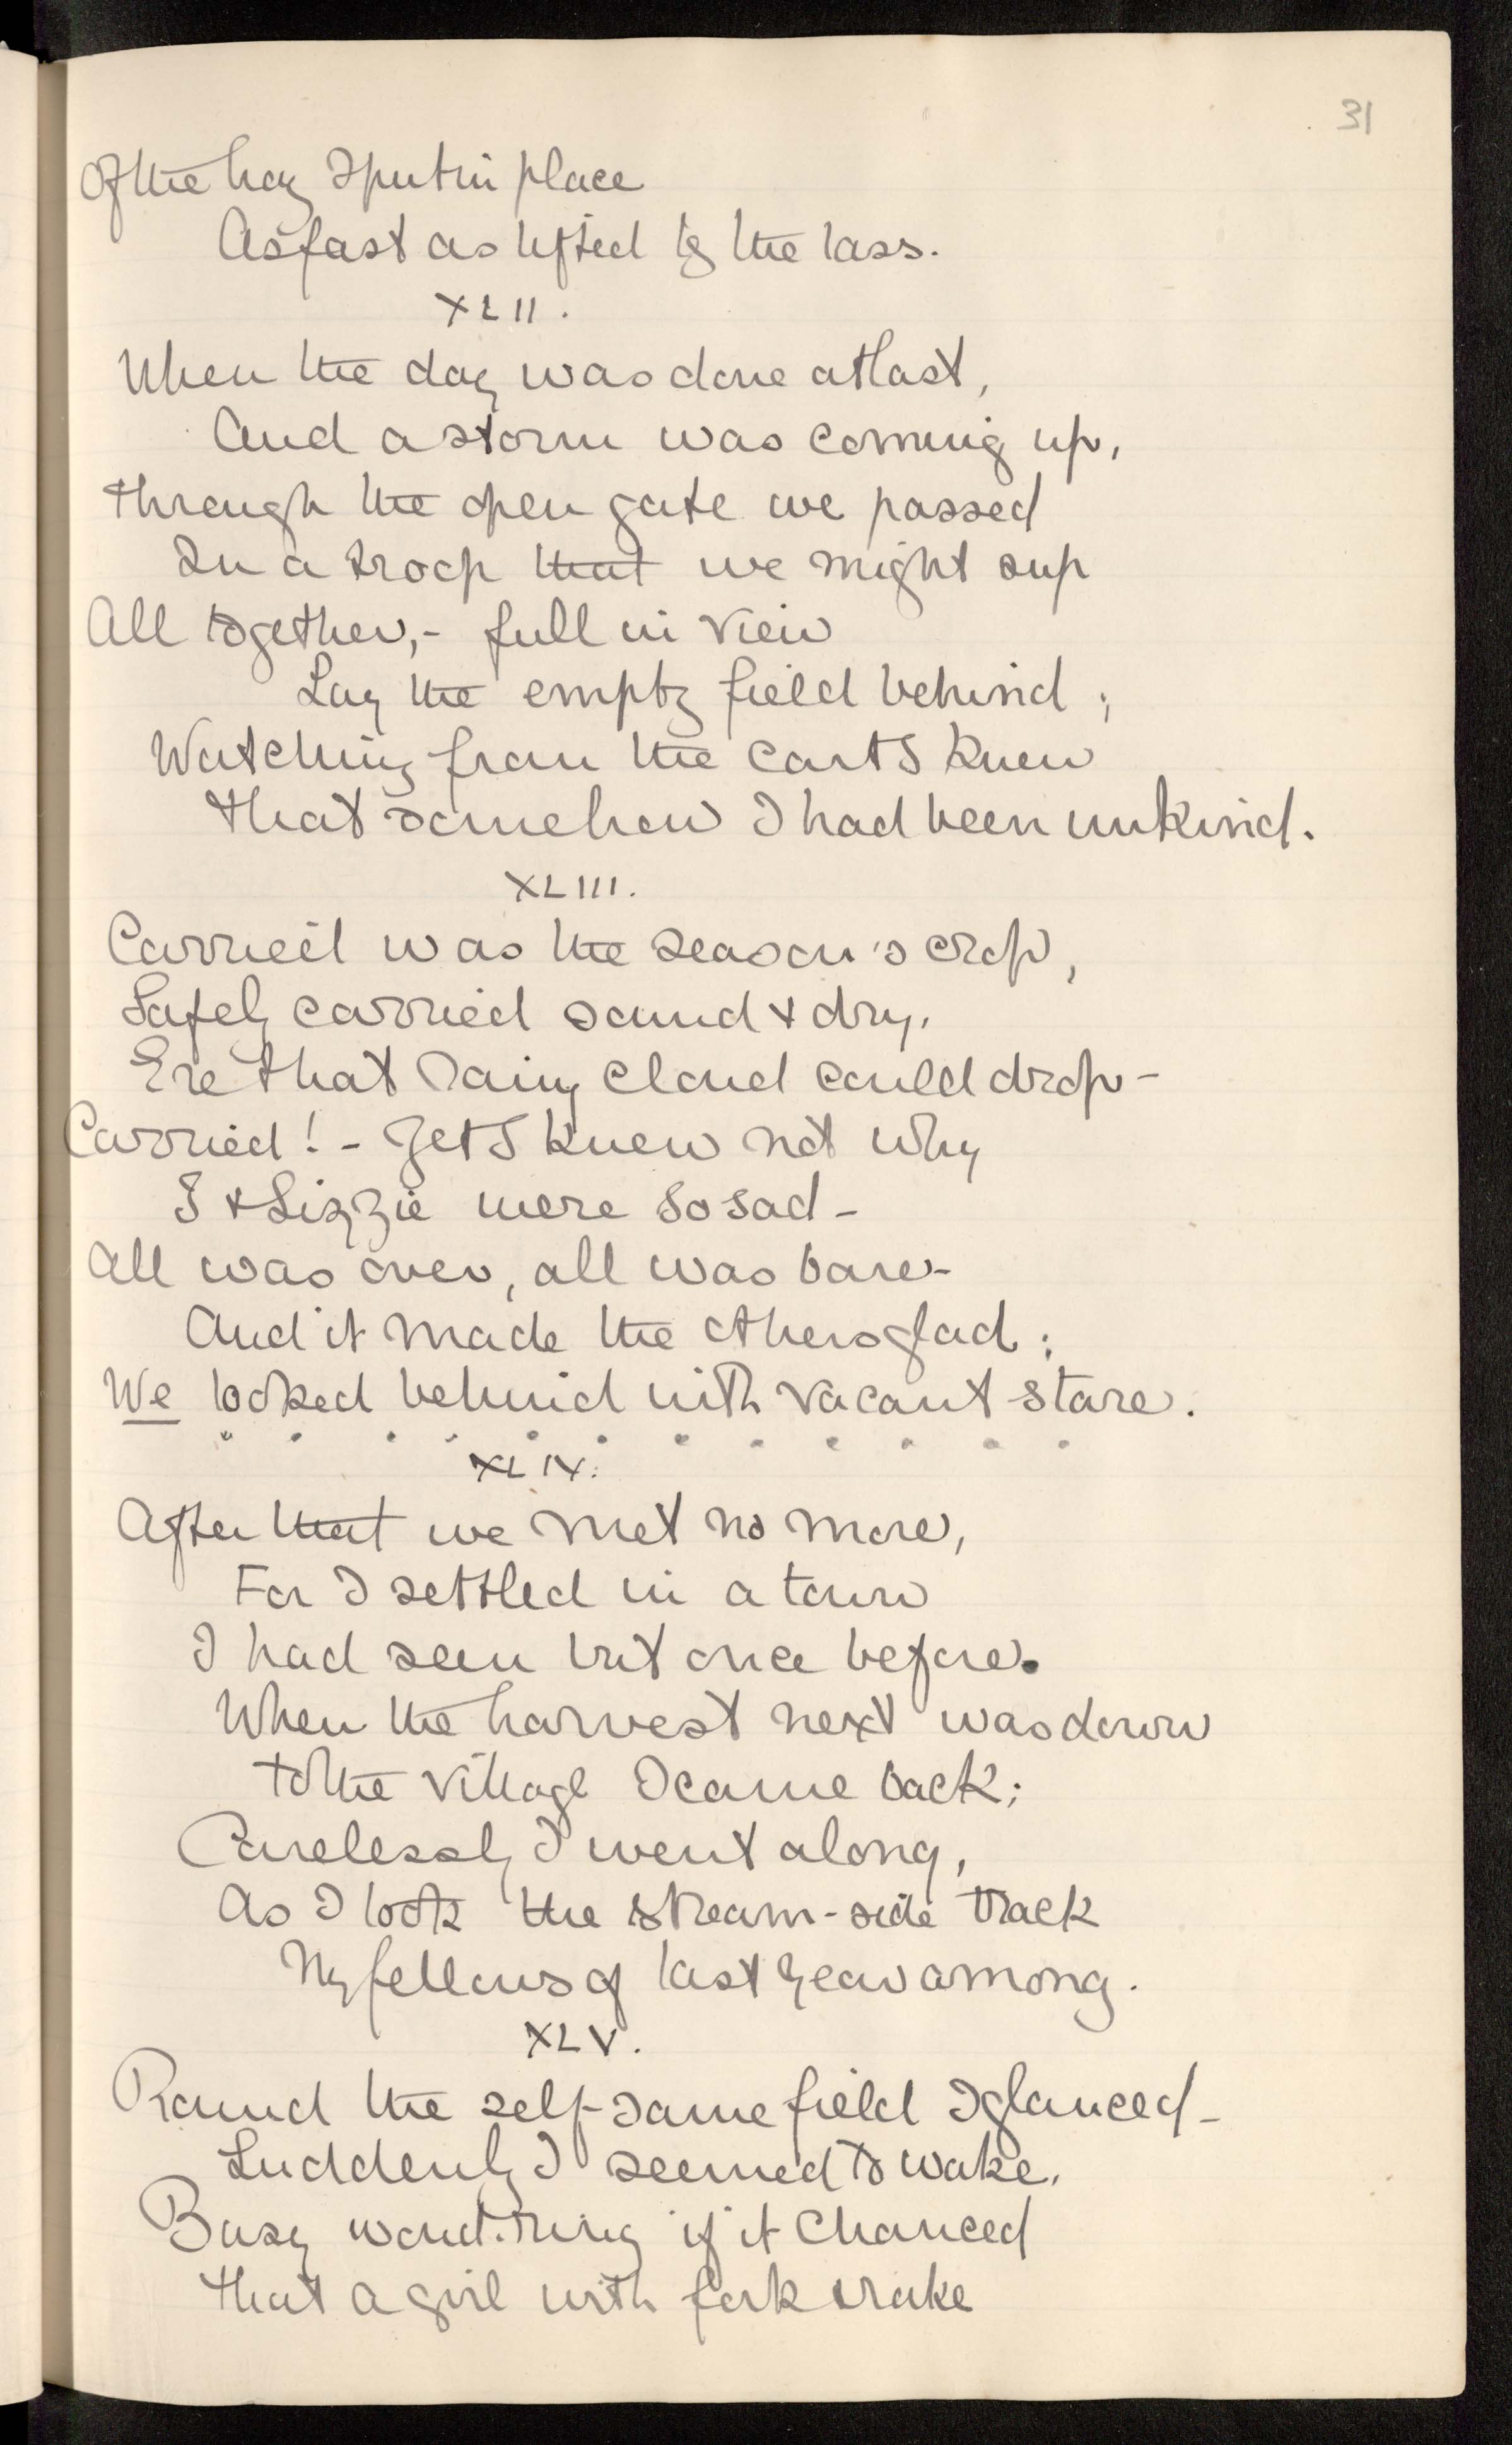 31
Of the hay I put in place
As fast as lifted by the lass.
XLII.
When the day was done at last,
And a storm was coming up,
Through the open gate we passed
In a troop that we might sup
All together,- full in view
Lay the empty field behind;
Watching from the cart I knew
That somehow I had been unkind.
XLIII.
Carried was the season's crop,
Safely carried sound & dry,
Ere that rainy cloud could drop-
Carried! - Yet I knew not why
I & Lizzie were so sad-
All was over, all was bare-
And it made the others glad;
We looked behind with vacant stare.
. . . . . . . . . . . .
XLIV.
After that we met no more,
For I settled in a town
I had seen but once before.
When the harvest next was down
To the village I came back;
Carelessly I went along,
As I took the stream-side track
My fellows of last year among.
XLV.
Round the self-same field I glanced-
Suddenly I seemed to wake,
Busy wond'ring if it chanced
That a girl with fork & rake